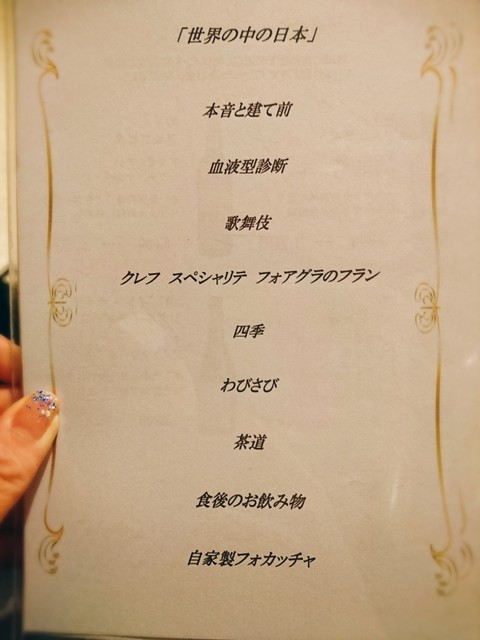 「世界の中の日本」
本音と建て前
血液型診断
歌舞伎
クレフ　スペシャリテ　フォアグラのフラン
四季
わびさび
茶道
食後のお飲み物
自家製フォカッチャ